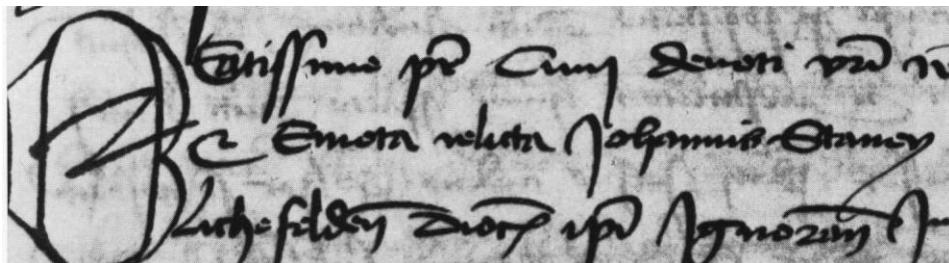 Beatissime pr Cum devoti vri
Emota relicta Johannis Stavey
Lichefelden dioc ipi Ignoran